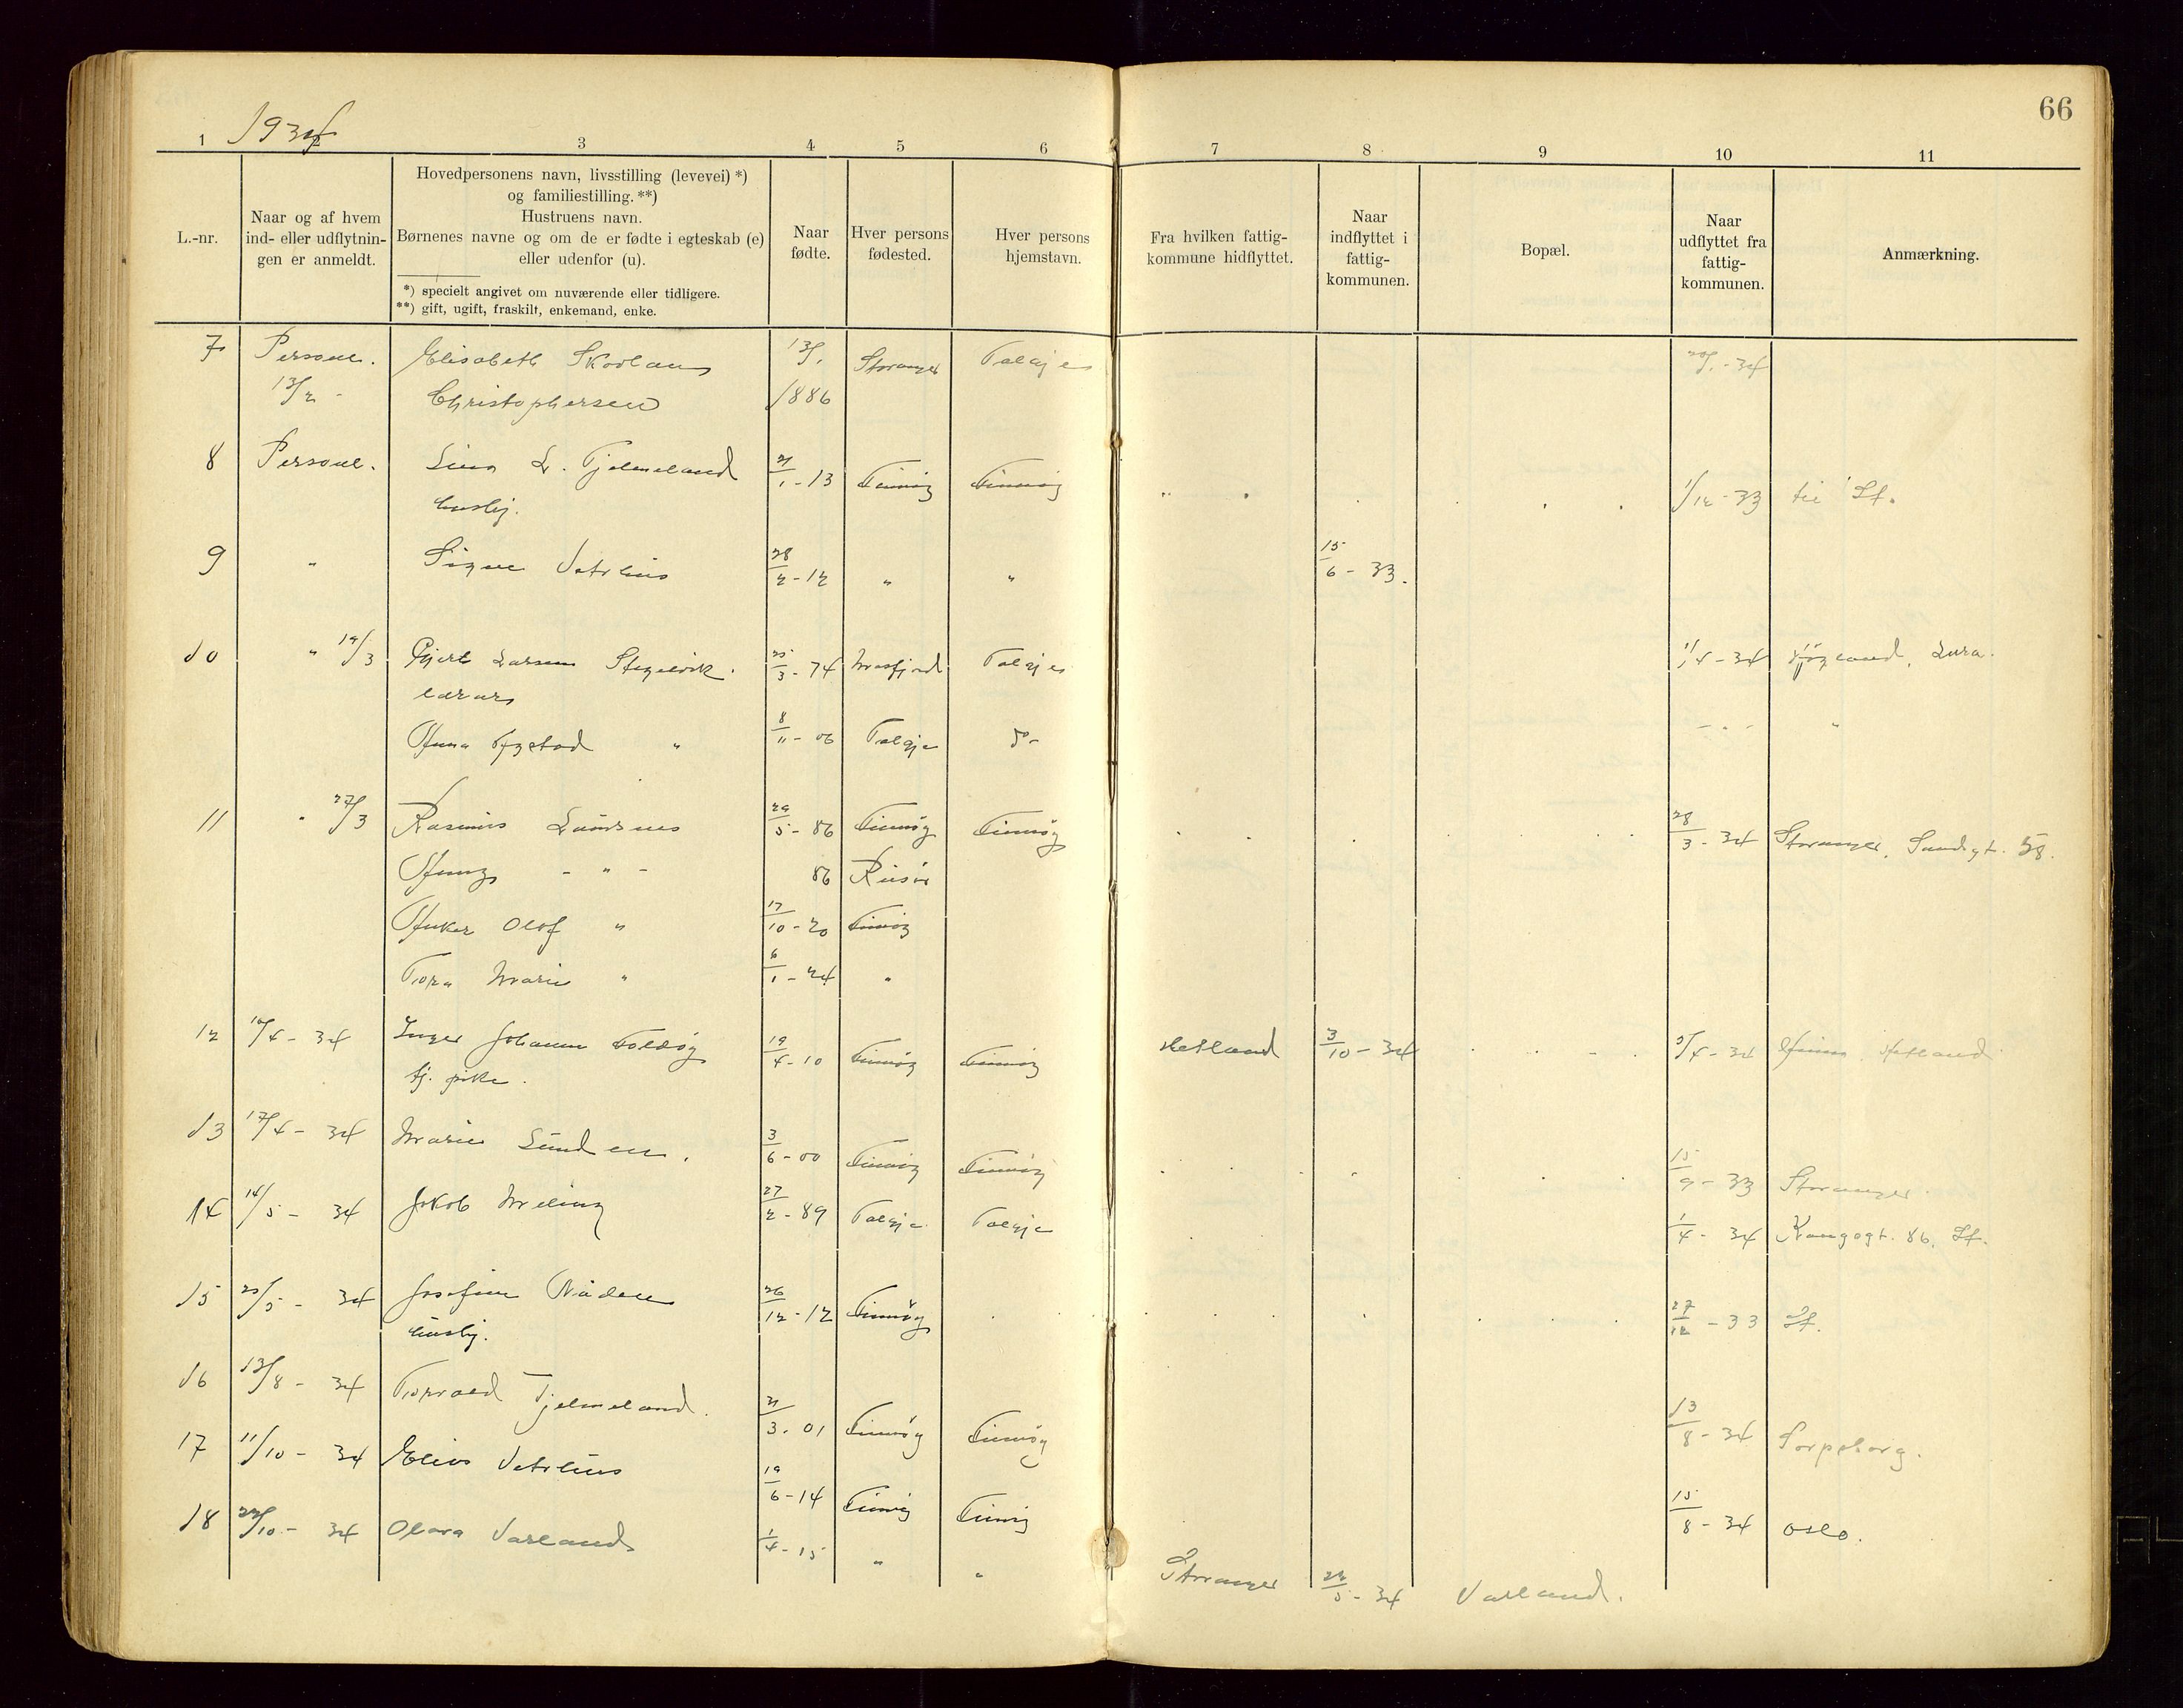 66
1934
1 2 3 4 5 6 7 8 9 10 11
L.-nr.
Naar og af hvem ind- eller udflytnin-gen er anmeldt.
Hovedpersonens navn, livsstilling (levevei) *)
og familiestilling. **)
Hustruens navn.
Børnenes navne og om de er fødte i egteskab (e)
eller udenfor (u).
*) specielt angivet om nuværende eller tidligere.
**) gift, ugift, fraskilt, enkemand, enke.
Naar fødte.
Hver persons fødested.
Hver persons hjemstavn.
Fra hvilken fattig-kommune hidflyttet.
Naar indflyttet i fattig-kommunen.
Bopæl.
Naar udflyttet fra fattig-kommunen.
Anmærkning.
7 Personl. Elisabeth Skovlans 13/1 Stavanger Talgje 20/1-34
13/2 - Christophersen 1886
8 Personl. Lina L. Tjelmeland 21/1-13 Finnøy Finnøy 1/12-33 til St.
huslig.
9 " Signe Vetrhus 28/2-12 " " 15/6-33.
10 " 19/3 Gjert Larsen Stigelvik. 25/3-74 Talgje 1/4-34 Lura.
lærar
Anna Bystad " 8/11-06 Talgje do - " - "
11 " 27/3 Rasmus Laudsnes 29/5-86 Finnøy Finnøy 28/3-34 Stavanger, Sandsgt. 58.
Anny - " - 86 Risør
Anker Olof " 17/10-20 Finnøy
Tora Marie " 6/1-24 "
12 10/4-34 Inger Johanne Foldøy 19/4-10 Finnøy Finnøy Hetland 3/10-34 5/4-34 Hetland
tj. pike.
13 17/4-34 Marie Lunden. 3/6-00 Finnøy Finnøy 15/9-33 Stavanger.
14 14/5-34 Jakob Meling 27/2-89 Talgje Talgje 1/4-34 Kongsgt. 86, St.
15 25/5-34 Josefine Nåden 26/12-12 Finnøy 27/12-33 St.
huslig.
16 13/8-34 Torvald Tjelmeland. 21/3-01 Finnøy Finnøy 13/8-34 Sarpsborg.
17 11/10-34 Elias Vetrhus 19/6-14 Finnøy Finnøy 15/8-34 Oslo.
18 22/10-34 Olava Varland 1/4-15 " " Stavanger 22/5-34 Varland.